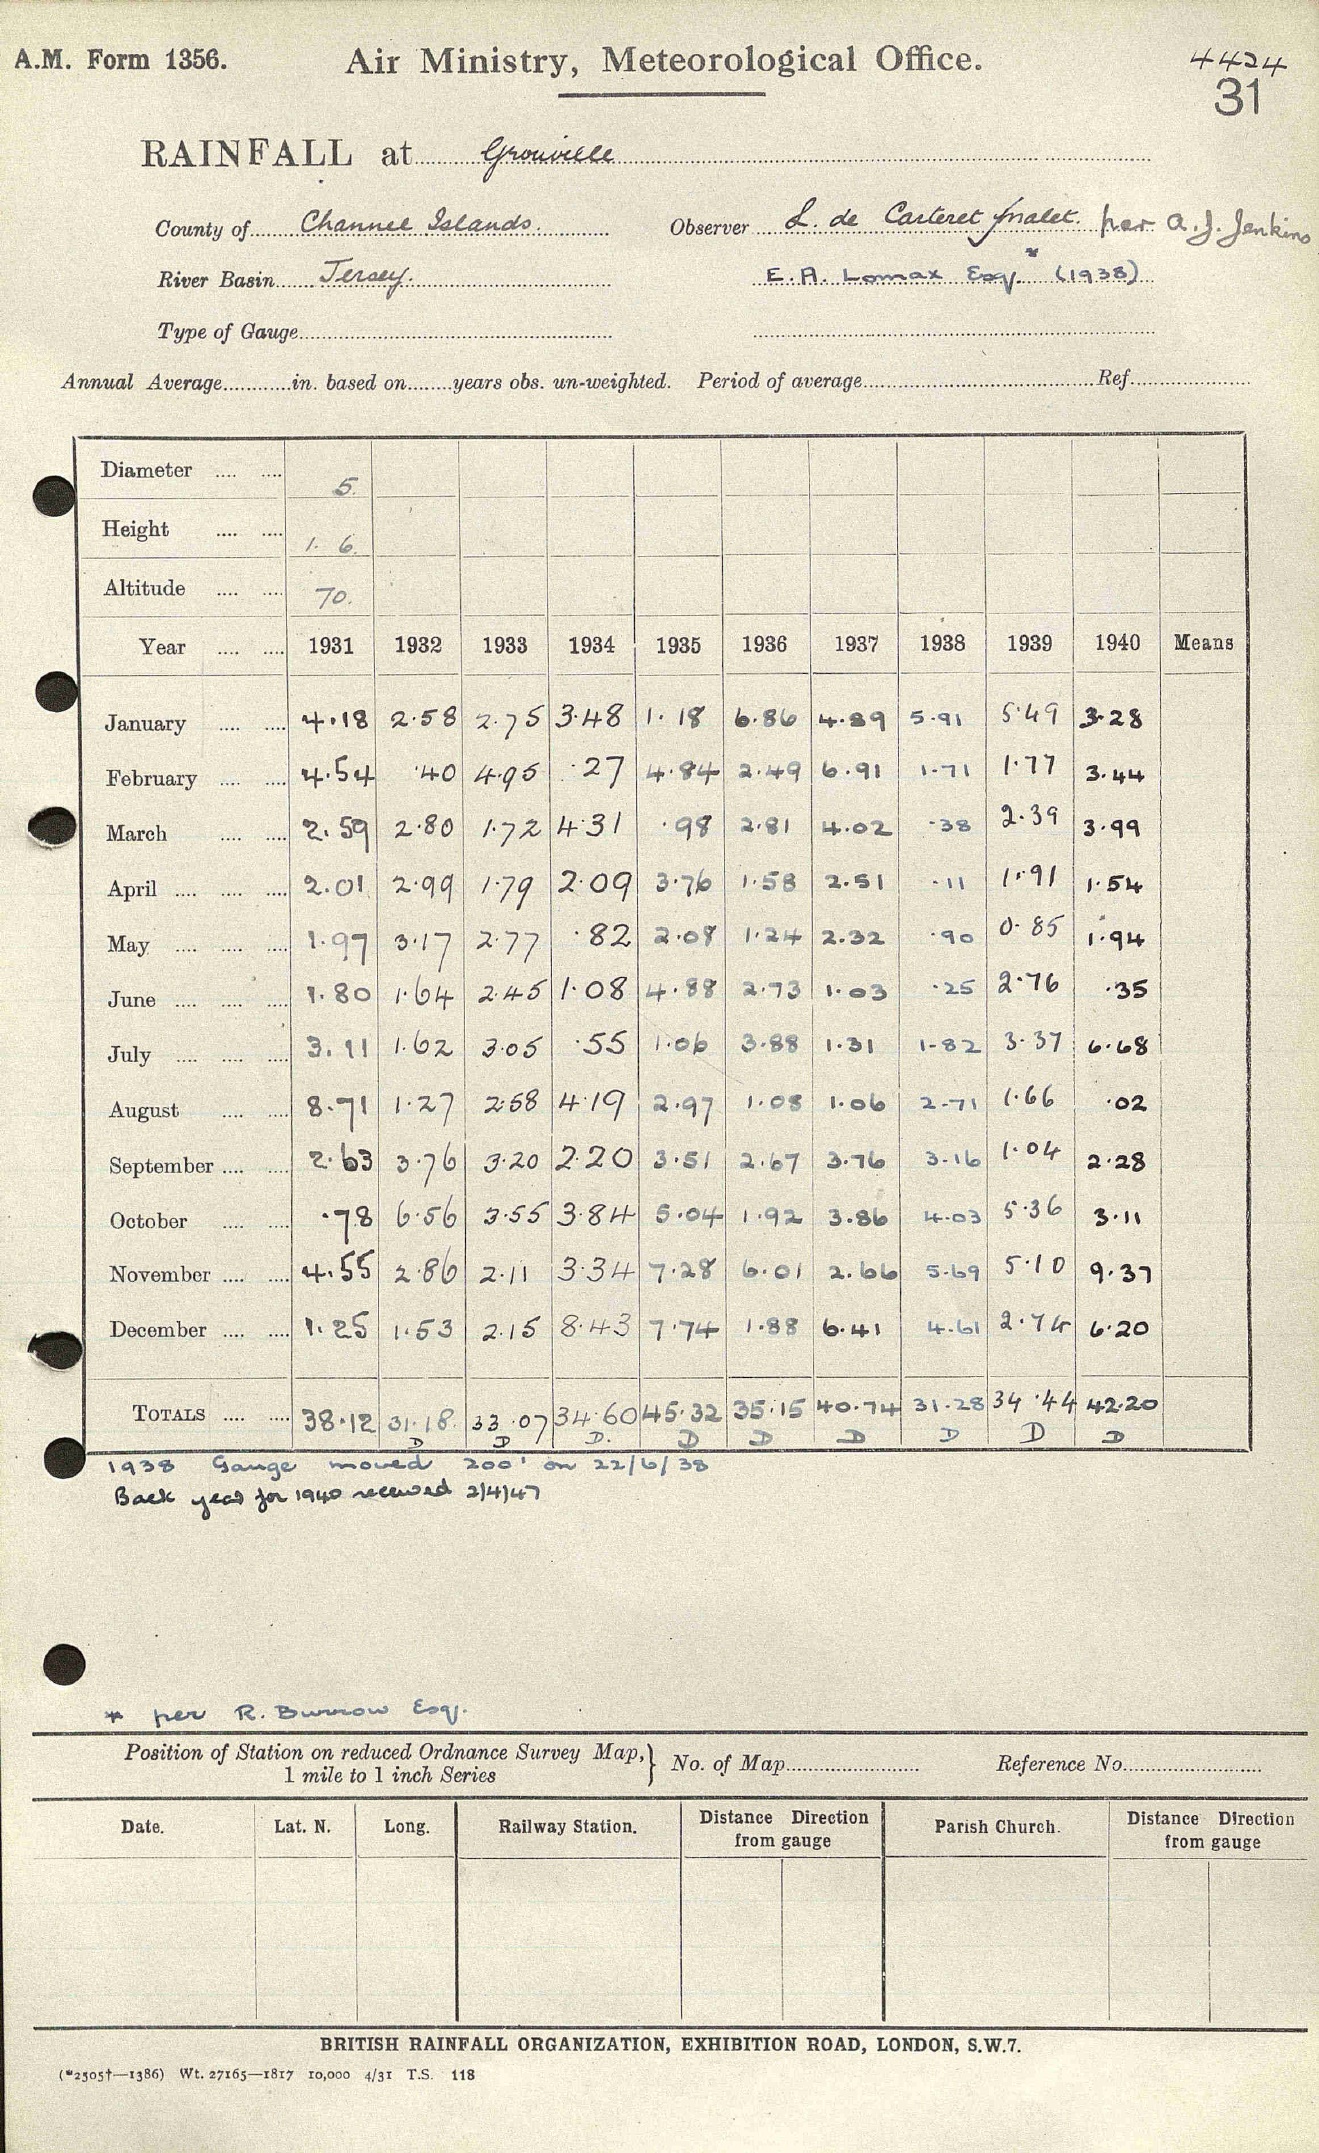 A.M. Form 1356. Air Ministry, Meteorological Office. 4424
31
RAINFALL at Grouville
County of Channel Islands. Observer L. de Carteret Malet. per A. J. Jenkins
River Basin Jersey. E. A. Lomax Esq.* (1938)
Type of Gauge
Annual Average in. based on years obs. un-weighted. Period of average Ref.
Diameter 5.
Height 1. 6.
Altitude 70.
Year 1931 1932 1933 1934 1935 1936 1937 1938 1939 1940 Means
January 4.18 2.58 2.75 3.48 1.18 6.86 4.89 5.91 5.49 3.28
February 4.54 .40 4.95 .27 4.84 2.49 6.91 1.71 1.77 3.44
March 2.59 2.80 1.72 4.31 .98 2.81 4.02 .38 2.39 3.99
April 2.01 2.99 1.79 2.09 3.76 1.58 2.51 .11 1.91 1.54
May 1.97 3.17 2.77 .82 2.08 1.24 2.32 .90 0.85 1.94
June 1.80 1.64 2.45 1.08 4.88 2.73 1.03 .25 2.76 .35
July 3.11 1.62 3.05 .55 1.06 3.88 1.31 1.82 3.37 6.68
August 8.71 1.27 2.58 4.19 2.97 1.08 1.06 2.71 1.66 .02
September 2.63 3.76 3.20 2.20 3.51 2.67 3.76 3.16 1.04 2.28
October .78 6.56 3.55 3.84 5.04 1.92 3.86 4.03 5.36 3.11
November 4.55 2.86 2.11 3.34 7.28 6.01 2.66 5.69 5.10 9.37
December 1.25 1.53 2.15 8.43 7.74 1.88 6.41 4.61 2.74 6.20
TOTALS 38.12 31.18 33.07 34.60 45.32 35.15 40.74 31.28 34.44 42.20
D D D. D D D D D D
1938 Gauge moved 200' on 22/6/38
Back year for 1940 received 2/4/47
* per R. Burrow Esq.
Position of Station on reduced Ordnance Survey Map,} No. of Map Reference No.
1 mile to 1 inch Series
Date. Lat. N. Long. Railway Station. Distance Direction from gauge Parish Church. Distance Direction from gauge
BRITISH RAINFALL ORGANIZATION, EXHIBITION ROAD, LONDON, S.W.7.
(*2505†—1386) Wt. 27165—1817 10,000 4/31 T.S. 118